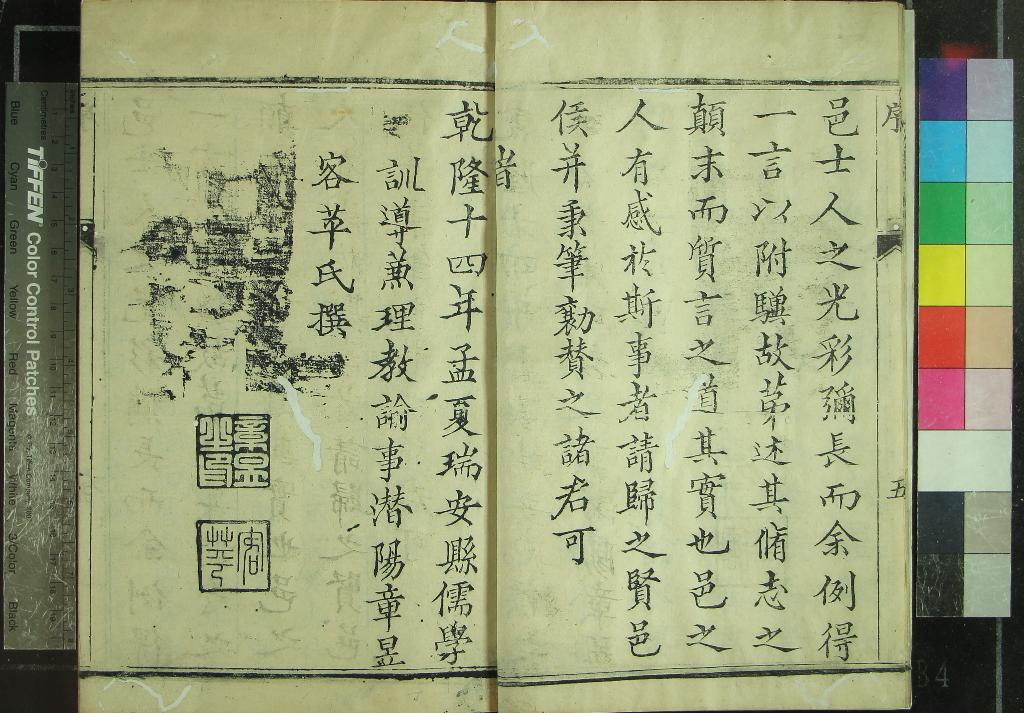 序
五
邑士人之光彩彌長而余例得
一言以附驥故苐述其脩志之
顛末而質言之道其實也邑之
人有感於斯事者請歸之賢邑
侯并秉筆勷賛之諸君可
乾隆十四年孟夏瑞安縣儒學
訓導蕭理教諭事潜陽章昱
容苹氏撰
章昱之印
容苹
Centimetres
TIFFEN Color Control Patches
Blue Cyan Green Yellow Red Magenta White 3/Color Black
B4